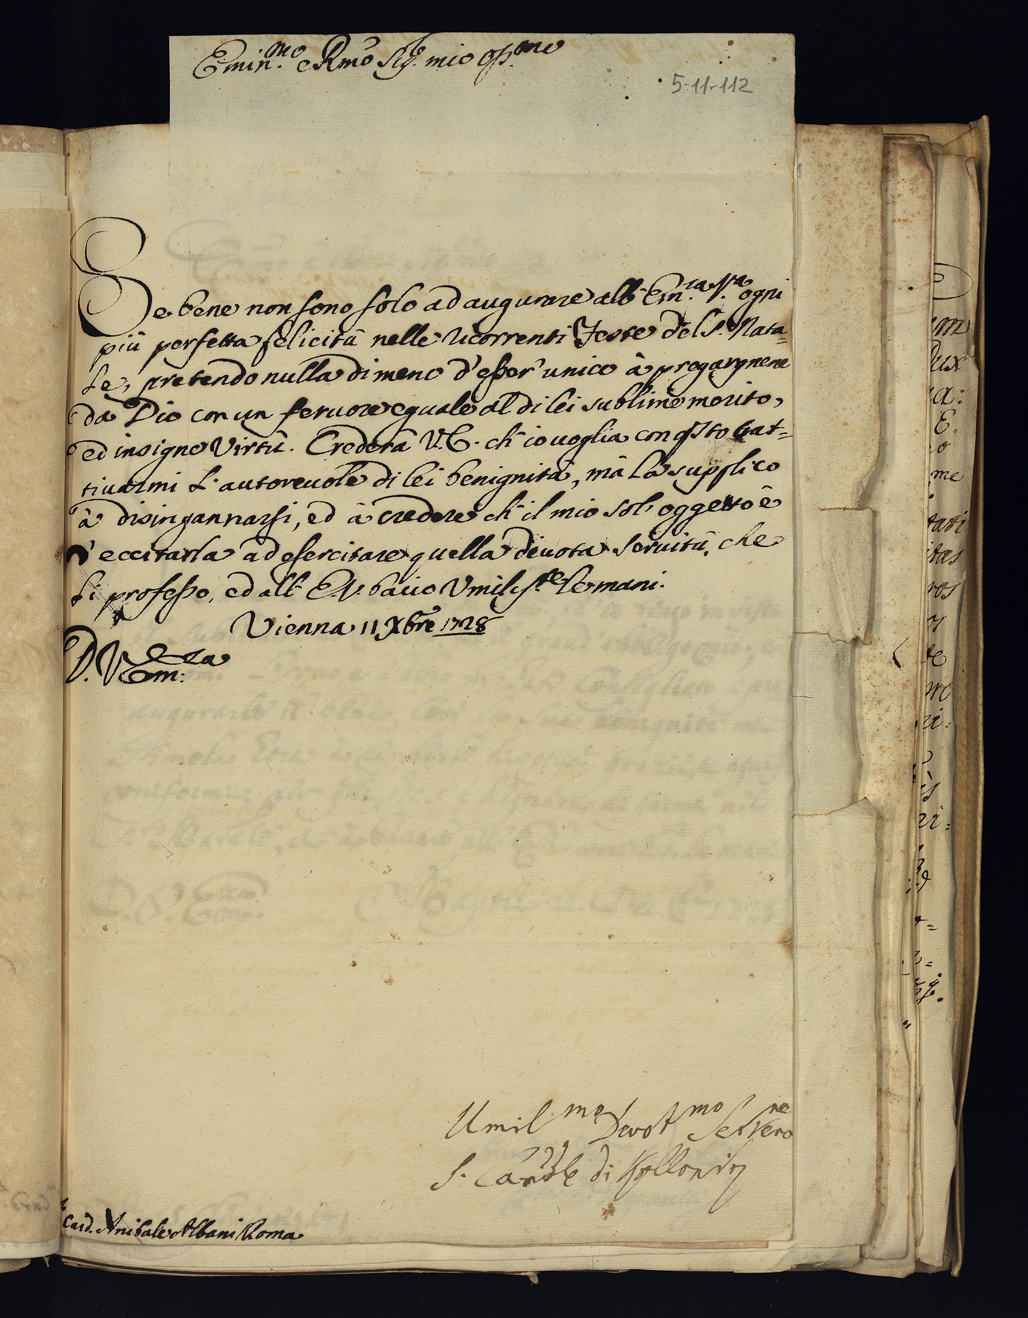 Emin.mo e Rmo Sig.r mio oss.mo
5-11-112
Se bene non sono solo ad augurare all' Em.za V.ra ogni
più perfetta felicità nelle ricorrenti Feste del S. Nata=
le, pretendo nulladimeno d'esser' unico à pregargnene
da Dio con un fervore eguale al di lei sublime merito,
ed insigne Virtù. Crederà V.E. ch' io voglia con q.sto cat=
tivarmi l'autorevole di lei benignità, mà la supplico
à disingannarsi, ed à credere ch' il mio solo oggetto è
d'eccitarla ad esercitare quella divota servitù, che
li professo, ed all' E.V. bacio Vmiliss.te le mani.
Vienna 11 Xbre 1728
D. V. Em.za
Umil.mo Devot.mo Servero
S. Cardle di Kollonitz
Card. Anibale Albani Roma